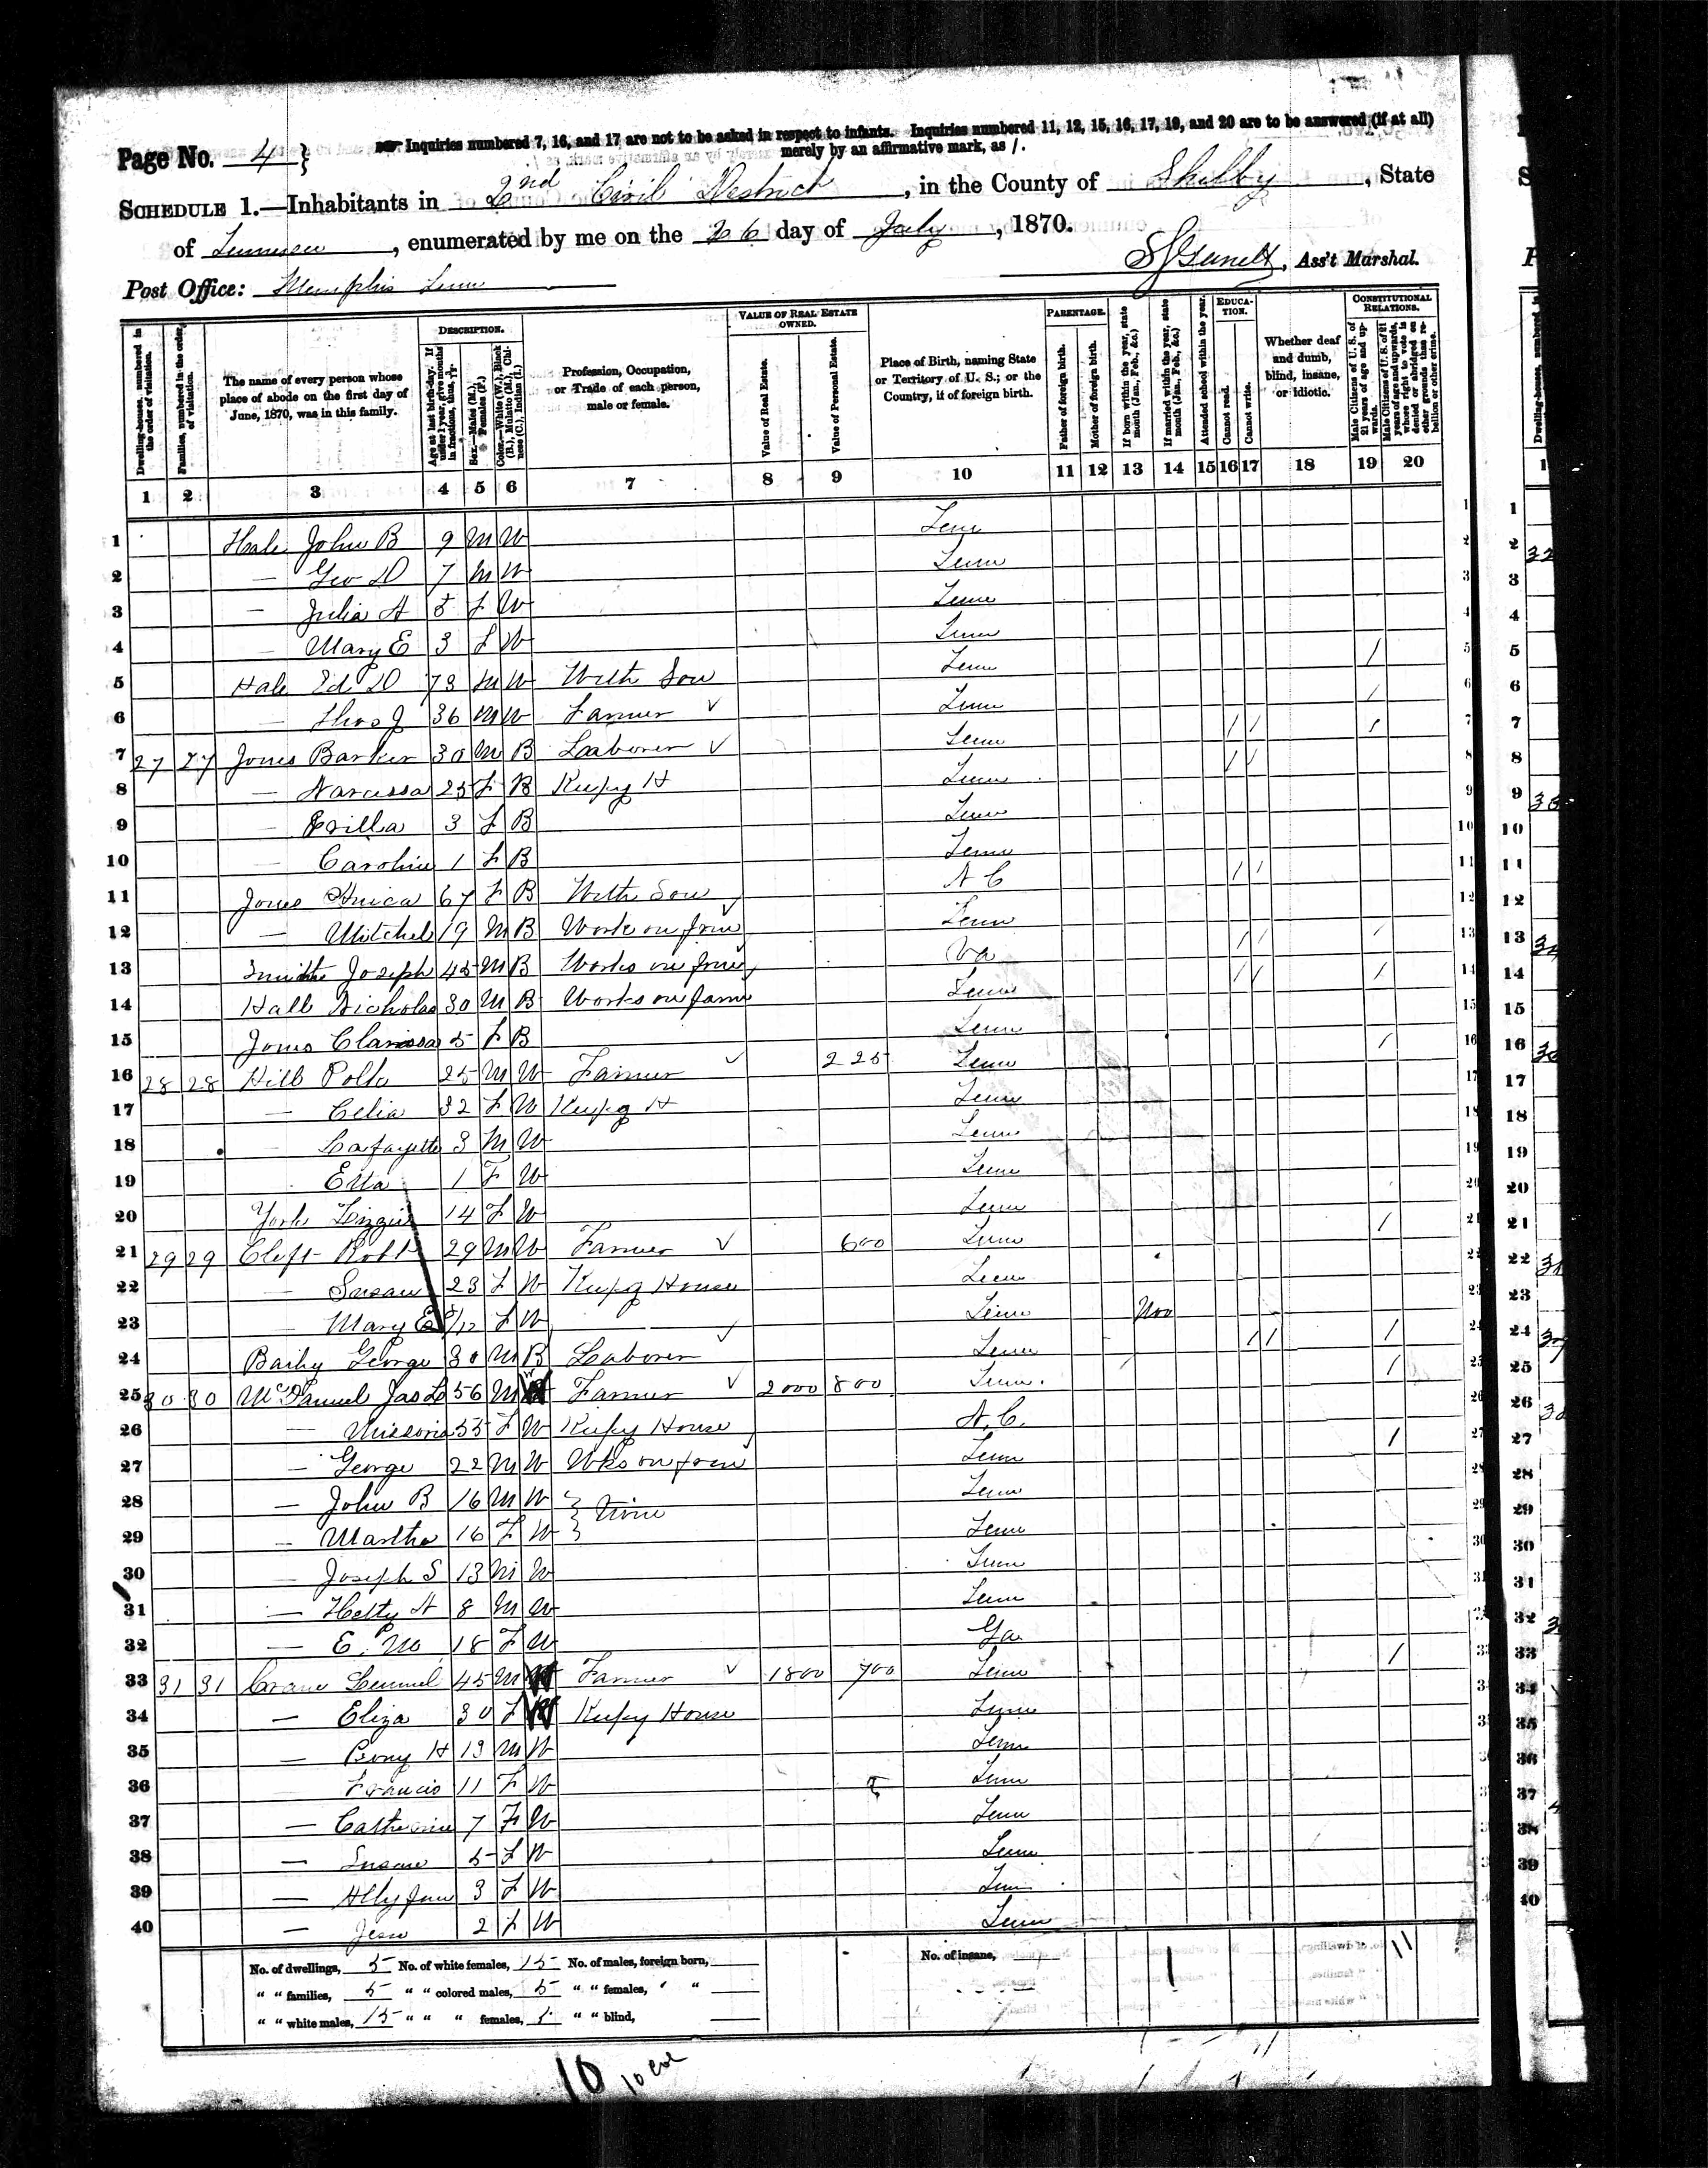 Page No. 4 }
Inquiries numbered 7, 16, and 17 are not to be asked in respect to infants. Inquiries numbered 11, 12, 15, 16, 17, 19, and 20 are to be answered (if at all)
merely by an affirmative mark, as /.
SCHEDULE 1.—Inhabitants in 2nd Civil District, in the County of Shelby, State
of Tennessee, enumerated by me on the 26 day of July, 1870.
Post Office: Memphis Tenn
Ass't Marshal.
Dwelling-houses, numbered in the order of visitation.
Families, numbered in the order of visitation.
The name of every person whose place of abode on the first day of June, 1870, was in this family.
DESCRIPTION.
Age at last birth-day. If under 1 year, give months in fractions, thus,
Sex.—Males (M.), Females (F.)
Color.—White (W.), Black (B.), Mulatto (M.), Chinese (C.), Indian (I.)
Profession, Occupation, or Trade of each person, male or female.
VALUE OF REAL ESTATE OWNED.
Value of Real Estate.
Value of Personal Estate.
Place of Birth, naming State or Territory of U. S.; or the Country, if of foreign birth.
PARENTAGE.
Father of foreign birth.
Mother of foreign birth.
If born within the year, state month (Jan., Feb., &c.)
If married within the year, state month (Jan., Feb., &c.)
Attended school within the year.
EDUCATION.
Cannot read.
Cannot write.
Whether deaf and dumb, blind, insane, or idiotic.
CONSTITUTIONAL RELATIONS.
Male Citizens of U. S. of 21 years of age and upwards.
Male Citizens of U. S. of 21 years of age and upwards, whose right to vote is denied or abridged on other grounds than rebellion or other crime.
1 2 3 4 5 6 7 8 9 10 11 12 13 14 15 16 17 18 19 20
1 Hale John B 9 M W Tenn
2 — Geo D 7 M W Tenn
3 — Julia A 5 F W Tenn
4 — Mary E 3 F W Tenn
5 Hale Ed D 73 M W With Son Tenn /
6 — Thos J 36 M W Farmer Tenn /
7 27 27 Jones Barker 30 M B Laborer Tenn / / /
8 — Narcissa 25 F B Keepg H Tenn / /
9 — F B 3 Tenn
10 — Caroline 1 F B Tenn
11 Jones 67 F B With Son N C / /
12 — Mitchel 19 M B Work on farm Tenn
13 Smith Joseph 45 M B Works on farm Va / / /
14 Hall Nicholas 30 M B Works on farm Tenn / / /
15 Jones Clarissa 5 F B Tenn
16 28 28 Hill Polk 25 M W Farmer 225 Tenn /
17 — Celia 32 F W Keepg H Tenn
18 — Lafayette 3 M W Tenn
19 Etta 1 F W Tenn
20 York Lizzie 14 F W Tenn
21 29 29 Clift Robt 29 M W Farmer 600 Tenn /
22 — Susan 23 F W Keepg House Tenn
23 — Mary E 8/12 F W Tenn Nov
24 Baily George 30 M B Laborer Tenn / / /
25 30 30 McDaniel Jas L 56 M W Farmer 2000 800 Tenn /
26 — 53 F W Keepg House N. C.
27 — George 22 M W Wks on farm Tenn /
28 — John B 16 M W } Tenn
29 — Martha 16 F W } Tenn
30 — Joseph S 13 M W Tenn
31 — Hetty A 8 M W Tenn
32 — E. M 18 F W Ga
33 31 31 Crane Lemuel 45 M W Farmer 1800 700 Tenn /
34 — Eliza 30 F W Keepg House Tenn
35 — H 13 M W Tenn
36 Francis 11 F W Tenn
37 — Catherine 7 F W Tenn
38 — Susan 5 F W Tenn
39 — 3 F W Tenn
40 — 2 F W Tenn
No. of dwellings, 5 No. of white females, 15 No. of males, foreign born, No. of insane,
" " families, 5 " " colored males, 5 " " females, " "
" " white males, 15 " " " females, " " blind,
1 11
10 10 col